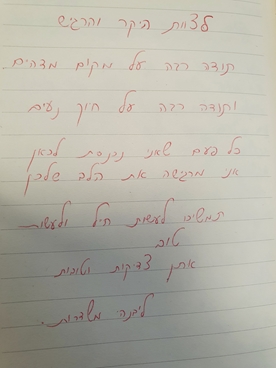 לצוות היקר והרגיש
תודה רבה על מקום מדהים
ותודה רבה על חיוך נעים
כל פעם שאני נכנסת לכאן
אני מרגישה את הלב שלכן
תמשיכו לעשות חיל ולעשות
טוב
אתן צדיקות וטובות
משדרות.